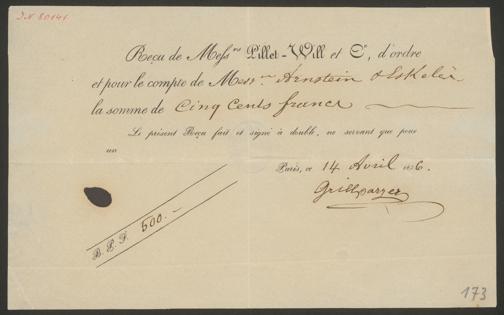 J.N. 80141
Reçu de Mess.rs Pillet-Will et C.ie, d'ordre
et pour le compte de Mess.rs Arnstein & Eskeles
la somme de Cinq Cents francs
Le présent Reçu fait et signé à double, ne servant que pour
un
Paris, ce 14 Avril 1836.
Grillparzer
B. P. F. 500.—
173